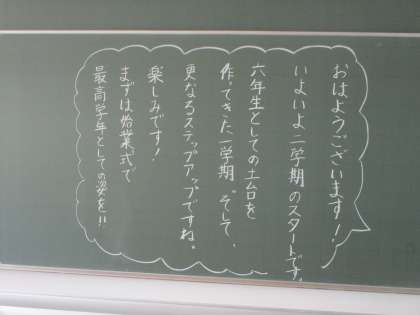 おはようございます!
いよいよ二学期のスタートです。
六年生としての土台を
作ってきた一学期。そして、
更なるステップアップですね。
楽しみです!
まずは始業式で
最高学年としての姿を!!